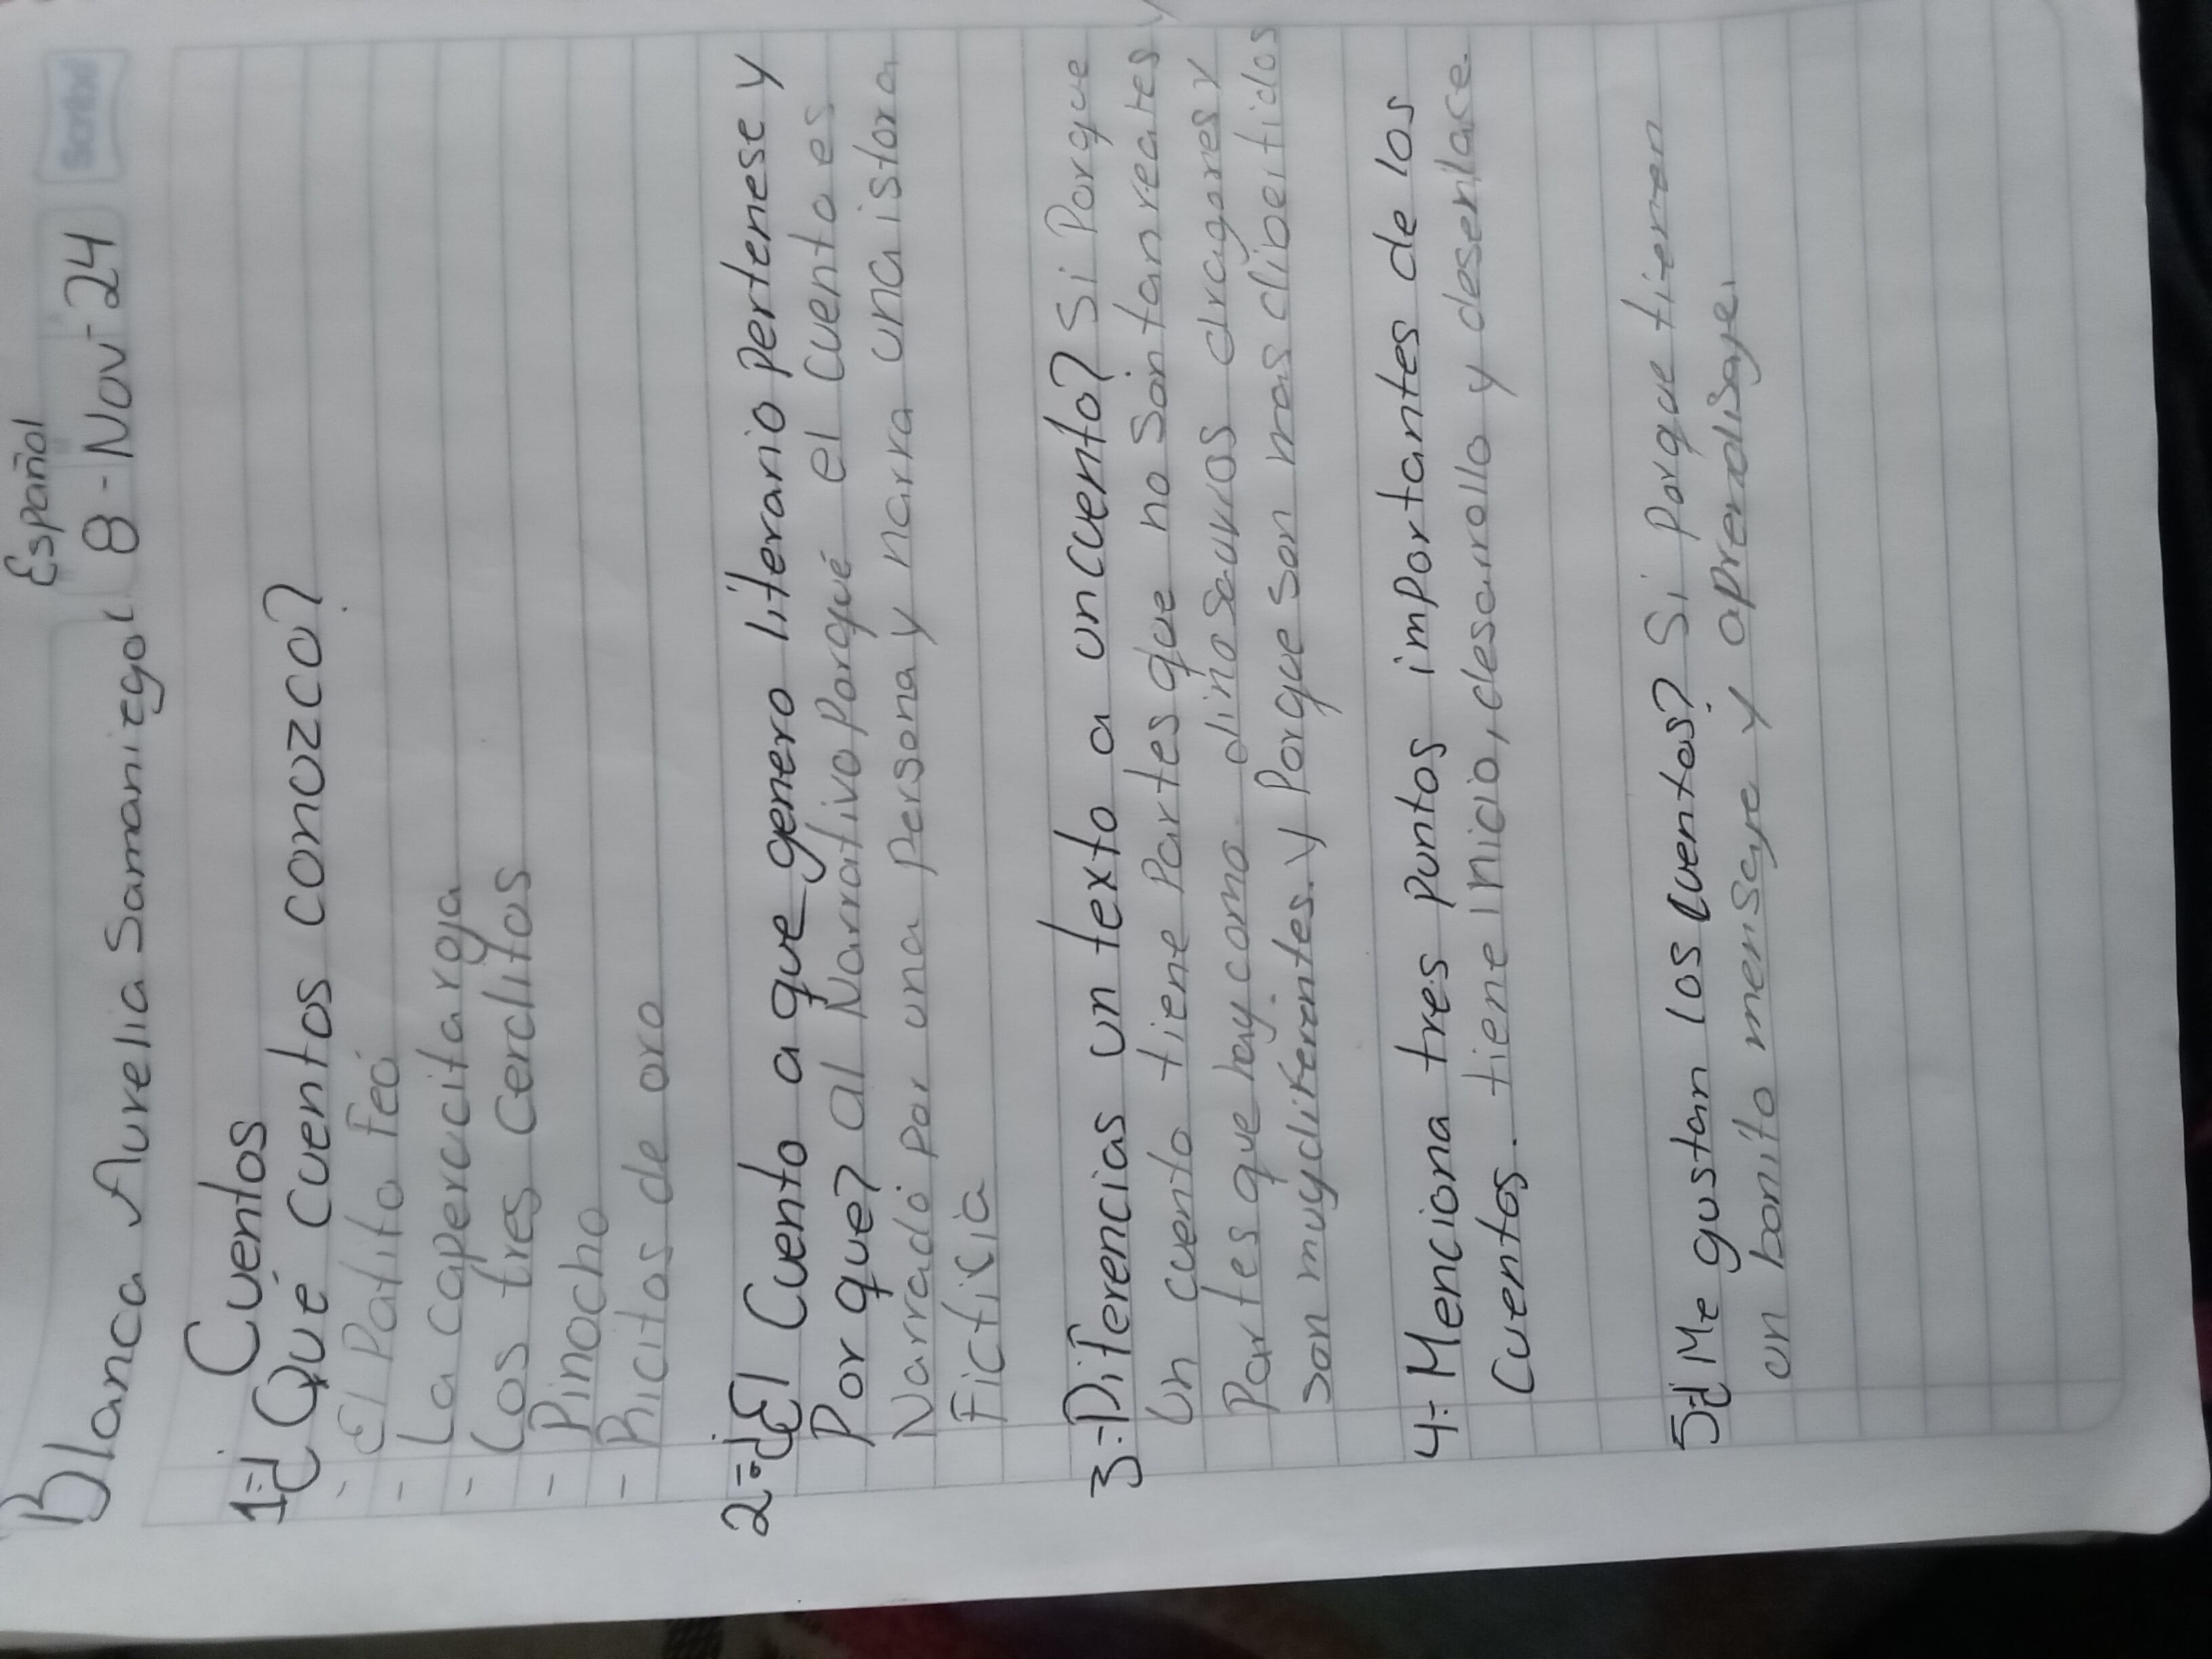 Español
Scribe
Blanca Aurelia Samaniego 8-Nov-24
Cuentos
1=¿Qué cuentos conozco?
- El Patito Feo
- La caperucita roja
- Los tres cerditos
- Pinocho
- Ricitos de oro
2=¿El Cuento a que genero literario pertenese y
Por que? al Narrativo Porqué el cuento es
Narrado por una Persona y narra una istora
Fictixia
3=Diferencias un texto a un cuento? Si Porque
Un cuento tiene Partes que no son tan reales y
Partes que hay como dinosaurios dragones y
son muy diferentes. y Porque son mas dibertidos
4= Menciona tres puntos importantes de los
Cuentos. tiene Inicio, desarrollo y desenlace.
5=¿Me gustan los cuentos? Si Porque tienen
un bonito mensaye y aprendisaye.